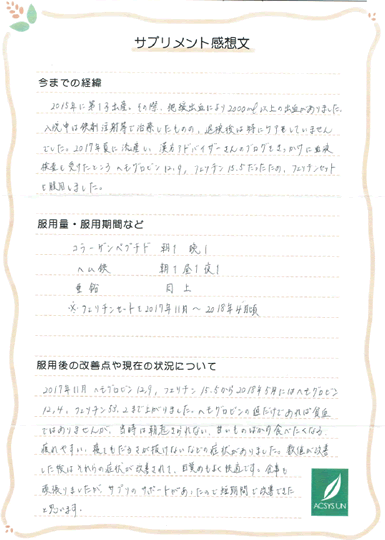 サプリメント感想文
今までの経緯
2015年に第1子出産。その際、弛緩出血により2000ml以上の出血がありました。
入院中は鉄剤注射等で治療したものの、退院後は特にケアをしていません
でした。2017年夏に流産し、漢方アドバイザーさんのブログをきっかけに血液
検査を受けたところヘモグロビン12.9、フェリチン15.5だったため、フェリチンセット
を服用しました。
服用量・服用期間など
コラーゲンペプチド 朝1 晩1
ヘム鉄 朝1 昼1 夜1
亜鉛 同上
※フェリチンセットを2017年11月〜2018年4月頃
服用後の改善点や現在の状況について
2017年11月 ヘモグロビン12.9、フェリチン15.5から2018年5月にはヘモグロビン
12.4、フェリチン55.2まで上がりました。ヘモグロビンの値だけであれば貧血
ではありませんが、当時は朝起きられない、甘いものばかり食べたくなる
疲れやすい、寝てもだるさが抜けないなどの症状がありました。数値が改善
した後はそれらの症状が改善されて、目覚めもよく快適です。食事も
頑張りましたが、サプリのサポートがあったので短期間で改善できた
と思います。
ACSYSUN